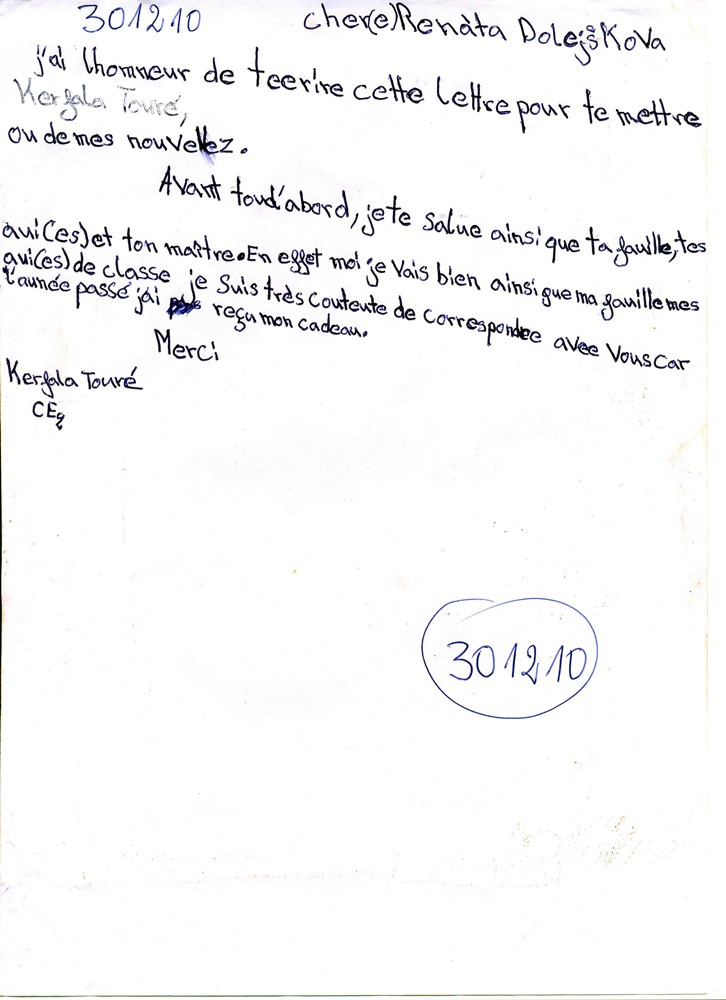 301210
cher(e) Renàta Dolejškova
j'ai lhomneur de teerire cette lettre pour te mettre
Kerfala Touré,
ou de mes nouvellez.
Avant toud'abord, je te salue ainsi que ta fauille, tes
aui(es) et ton maître. En effet moi je vais bien ainsi que ma fauille mes
aui(es) de classe je suis très couteute de correspondee avee vous car
l'aunée passé j'ai reçu mon cadeau.
Merci
Kerfala Touré
CE2
301210